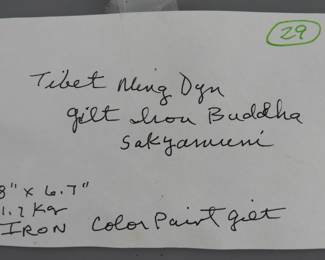 29
Tibet Ming Dyn
gilt Iron Buddha
Sakyamuni
8" x 6.7"
1.7 Kg
IRON Color Paint gilt